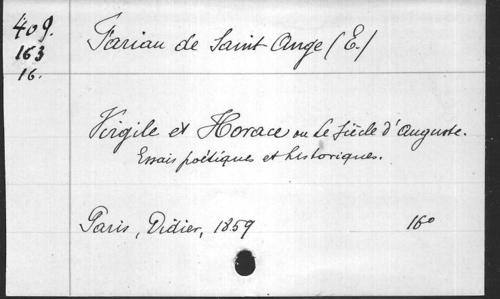 409.
163
16.
Fariau de Saint Ange (E.)
Virgile et Horace ou Le Siècle d'Auguste.
Essais poétiques et historiques.
Paris, Didier, 1859 16°